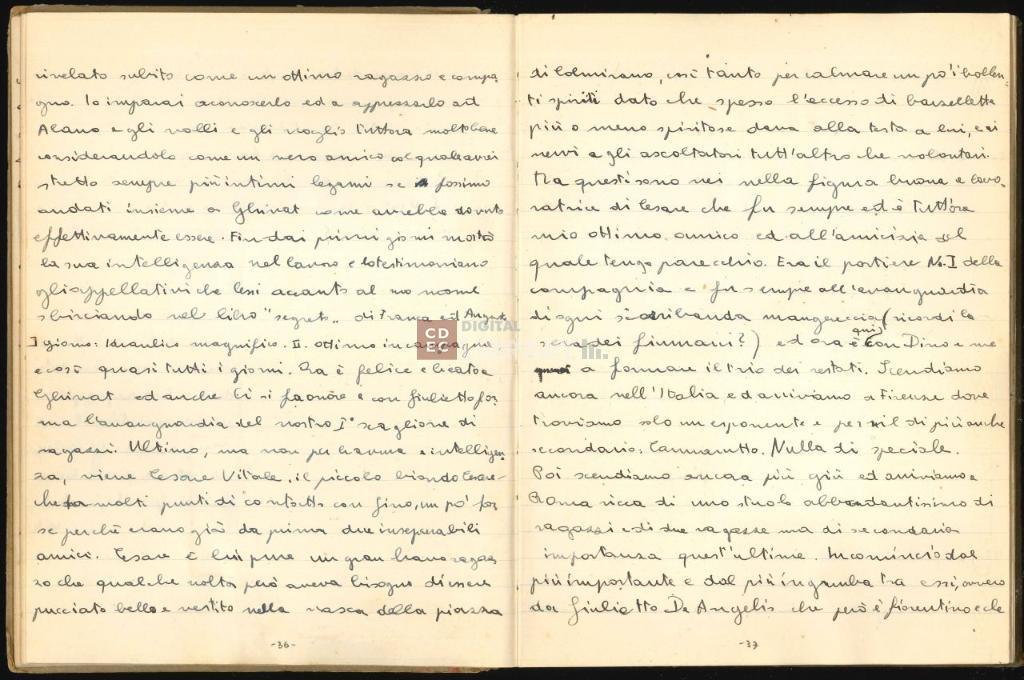 rivelato subito come un ottimo ragazzo e compa-
gno. Io imparai a conoscerlo ed a apprezzarlo ad
Alano e gli volli e gli voglio tuttora molto bene
considerandolo come un vero amico col quale avrei
stretto sempre più intimi legami se fossimo
andati insieme a Ghivat come avrebbe dovuto
effettivamente essere. Fin dai primi giorni mostrò
la sua intelligenza nel lavoro e lo testimoniano
gli appellativi che lessi accanto al suo nome
sbirciando nel libro "segreto" di Franca ed Augusto
I giorno: Idraulico magnifico. II. ottimo in campagna
e così quasi tutti i giorni. Ora è felice e beato a
Ghivat ed anche lì si fa onore e con Giulietto for-
ma l'avanguardia del nostro I° scaglione di
ragazzi. Ultimo, ma non per bravura e intelligen-
za, viene Cesare Vitale, il piccolo biondo Cesare
che ha molti punti di contatto con Gino, un po' for-
se perchè erano già da prima due inseparabili
amici. Cesare è lui pure un gran bravo ragaz-
zo che qualche volta però aveva bisogno di essere
pucciato bello e vestito nella vasca della piazza
-36-
di Colmirano, così tanto per calmare un po' i bollen-
ti spiriti dato che spesso l'eccesso di barzellette
più o meno spiritose dava alla testa a lui, e ai
nervi a gli ascoltatori tutt'altro che volontari.
Ma questi sono nei nella figura buona e lavo-
ratrice di Cesare che fu sempre ed è tuttora
mio ottimo amico ed all'amicizia del
quale tengo parecchio. Era il portiere No. I della
compagnia e fu sempre all'avanguardia
di ogni sribanda mangereccia (ricordi la
sera dei fiumani?) ed ora è qui con Dino e me
a formare il trio dei restati. Scendiamo
ancora nell'Italia ed arriviamo a Firenze dove
troviamo solo un esponente e per mil di più anche
secondario: Cammarutto. Nulla di speciale.
Poi scendiamo ancora più giù ed arriviamo a
Roma ricca di uno stuolo abbondantissimo di
ragazzi e di due ragazze ma di secondaria
importanza quest'ultime. Incomincio dal
più importante e dal più in gamba tra essi, ovvero
da Giulietto De Angelis che però è fiorentino e che
-37-
DIGITAL
CDEC